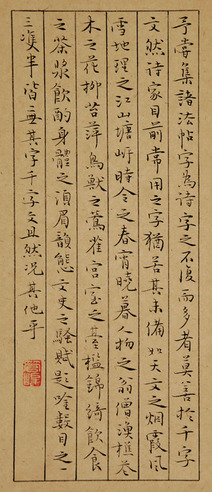 予嘗集諸法帖字為詩字之不復而多者莫善於千字
文然詩家目前常用之字猶苦其未備如天文之烟霞風
雪地理之江山塘岸時令之春宵曉暮人物之翁僧漁樵花
木之花柳苔萍鳥獸之鶯雀宮室之臺檻錦綺飲食
之茶漿飲酌身體之鬚眉韻態文史之騷賦題吟數目之一
三雙半皆無其字千字文且然況其他乎